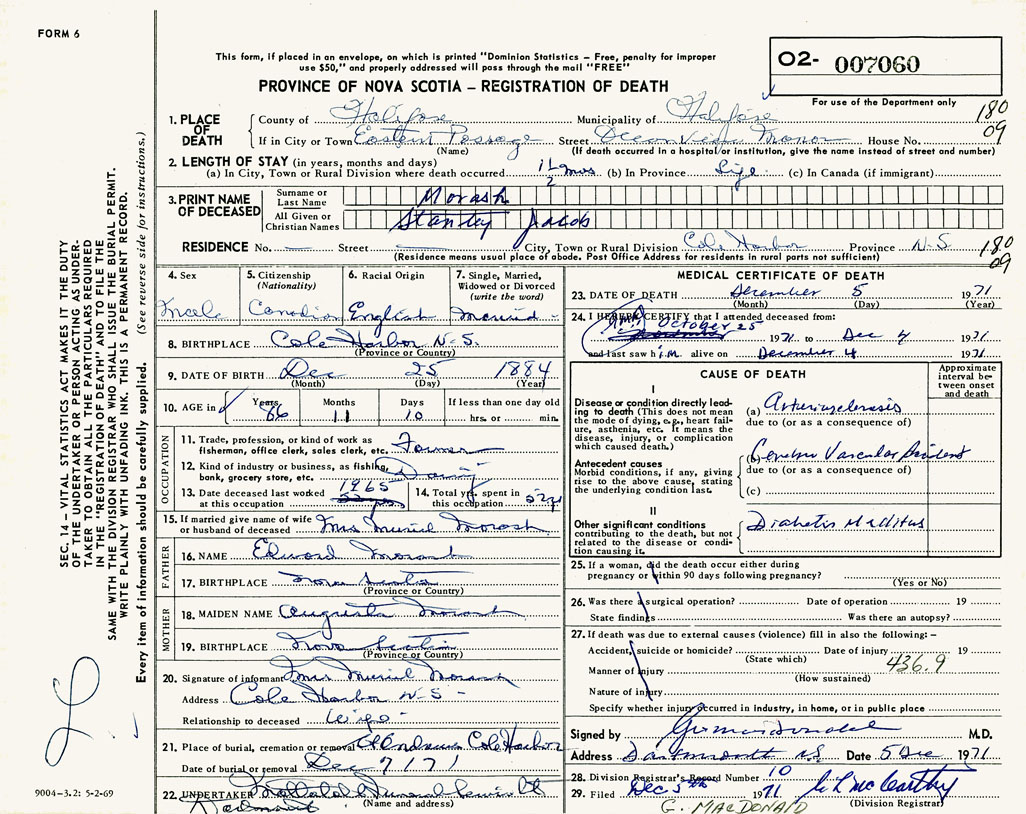 FORM 6
This form, if placed in an envelope, on which is printed "Dominion Statistics – Free, penalty for improper
use $50," and properly addressed will pass through the mail "FREE"
PROVINCE OF NOVA SCOTIA – REGISTRATION OF DEATH
02- 007060
For use of the Department only
1. PLACE OF DEATH
County of Halifax Municipality of Halifax 180
If in City or Town Eastern Passage Street Ocean View Manor House No. 09
(Name) (If death occurred in a hospital or institution, give the name instead of street and number)
2. LENGTH OF STAY (in years, months and days)
(a) In City, Town or Rural Division where death occurred 1 1/2 mos (b) In Province Life (c) In Canada (if immigrant)
3. PRINT NAME OF DECEASED
Surname or Last Name Morash
All Given or Christian Names Stanley Jacob
RESIDENCE No. — Street — City, Town or Rural Division Cole Harbor Province N.S. 180
(Residence means usual place of abode. Post Office Address for residents in rural parts not sufficient) 09
4. Sex
Male
5. Citizenship (Nationality)
Canadian
6. Racial Origin
English
7. Single, Married, Widowed or Divorced (write the word)
Married -
8. BIRTHPLACE Cole Harbor N-S.
(Province or Country)
9. DATE OF BIRTH Dec 25 1884
(Month) (Day) (Year)
10. AGE in Years 86 Months 11 Days 10 If less than one day old hrs. or min.
OCCUPATION
11. Trade, profession, or kind of work as
fisherman, office clerk, sales clerk, etc. Farmer
12. Kind of industry or business, as fishing,
bank, grocery store, etc. Dairy
13. Date deceased last worked
at this occupation 1965
14. Total yrs. spent in
this occupation 52
15. If married give name of wife
or husband of deceased Mrs Muriel Morash
FATHER
16. NAME Edward Morash
17. BIRTHPLACE Nova Scotia
(Province or Country)
MOTHER
18. MAIDEN NAME Augusta Morash
19. BIRTHPLACE Nova Scotia
(Province or Country)
20. Signature of informant Mrs Muriel Morash
Address Cole Harbor N-S-
Relationship to deceased Wife -
21. Place of burial, cremation or removal St Andrews Cole Harbor
Date of burial or removal Dec 7 1971
22. UNDERTAKER Funeral
(Name and address)
Dartmouth
MEDICAL CERTIFICATE OF DEATH
23. DATE OF DEATH December 5 1971
(Month) (Day) (Year)
24. I HEREBY CERTIFY that I attended deceased from:
October 25
1971 to Dec 4 1971
and last saw him alive on December 4 1971
CAUSE OF DEATH
Approximate interval between onset and death
I
Disease or condition directly leading to death (This does not mean the mode of dying, e.g., heart failure, asthenia, etc. It means the disease, injury, or complication which caused death.)
(a) Arteriosclerosis
due to (or as a consequence of)
Antecedent causes
Morbid conditions, if any, giving rise to the above cause, stating the underlying condition last.
(b) Cerebro Vascular Accident
due to (or as a consequence of)
(c)
II
Other significant conditions
contributing to the death, but not related to the disease or condition causing it.
Diabetis Mellitus
25. If a woman, did the death occur either during
pregnancy or within 90 days following pregnancy?
(Yes or No)
26. Was there a surgical operation? Date of operation 19
State findings Was there an autopsy?
27. If death was due to external causes (violence) fill in also the following:–
Accident, suicide or homicide? Date of injury 19
(State which) 436.9
Manner of injury
(How sustained)
Nature of injury
Specify whether injury occurred in industry, in home, or in public place
Signed by M.D.
Address Dartmouth N.S. Date 5 Dec 1971
28. Division Registrar's Record Number 10
29. Filed Dec 5th 1971 McCarthy
(Division Registrar)
G. MACDONALD
SEC. 14 – VITAL STATISTICS ACT MAKES IT THE DUTY
OF THE UNDERTAKER OR PERSON ACTING AS UNDER-
TAKER TO OBTAIN ALL THE PARTICULARS REQUIRED
IN THIS "REGISTRATION OF DEATH" AND TO FILE THE
SAME WITH THE DIVISION REGISTRAR WHO SHALL ISSUE THE BURIAL PERMIT.
WRITE PLAINLY WITH UNFADING INK. THIS IS A PERMANENT RECORD.
Every item of information should be carefully supplied. (See reverse side for instructions.)
9004-3.2: 5-2-69